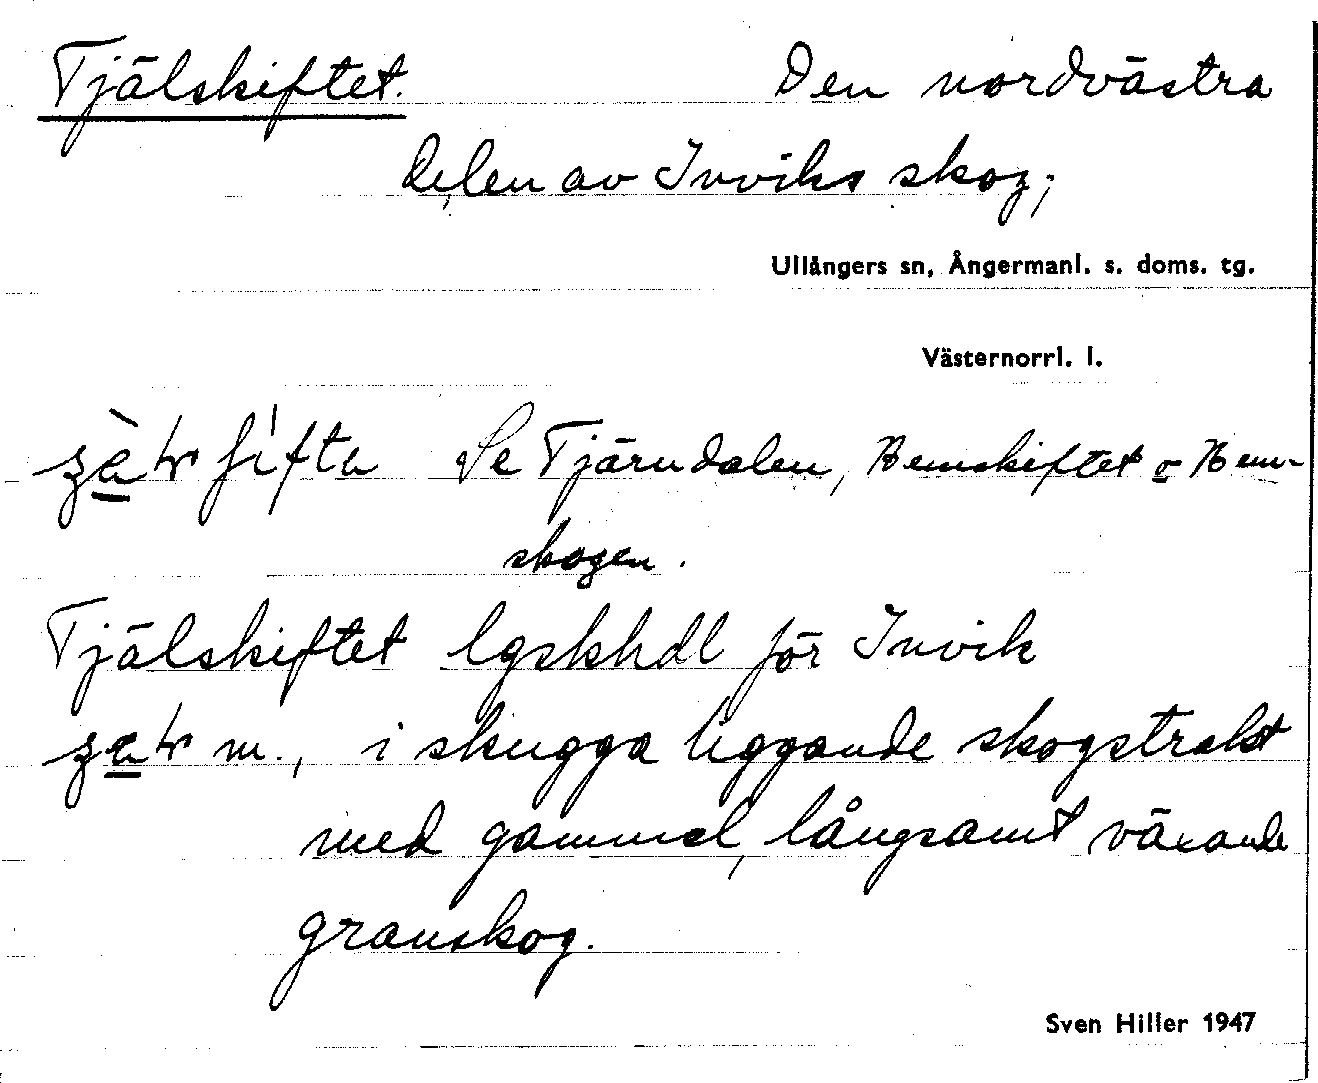 Tjälskiftet. Den nordvästra
delen av Inviks skog;
Ullångers sn, Ångermanl. s. doms. tg.
Västernorrl. l.
Se Tjärndalen, Hemskiftet o Hem-
skogen.
Tjälskiftet lgskhdl för Invik
m., i skugga liggande skogstrakt
med gammal, långsamt växande
granskog.
Sven Hiller 1947